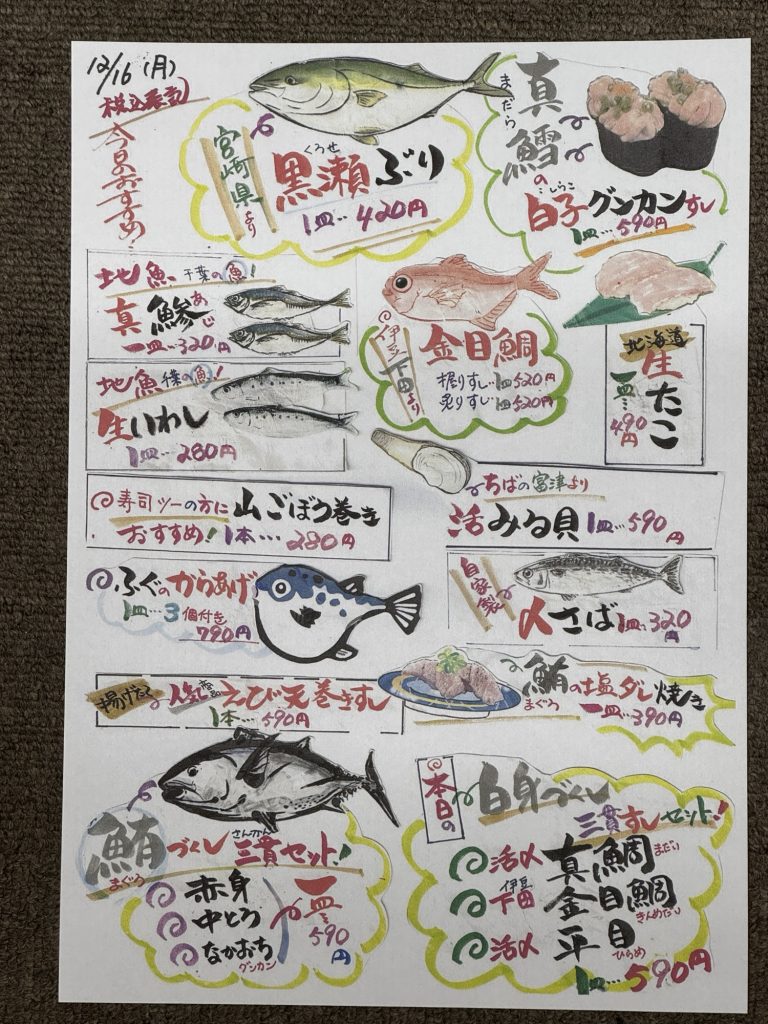 12/16(月)
税込表記
今日のおすすめ!
宮崎県より
くろせ
黒瀬ぶり
1皿…420円
まだら
真鱈の
しらこ
白子グンカンすし
1皿…590円
地魚 千葉の魚!
真鯵 あじ
一皿…320円
地魚 千葉の魚!
生いわし
1皿…280円
伊豆下田より
金目鯛
握りすし 1皿520円
炙りすし 1皿520円
北海道
生たこ
一皿…490円
寿司ツーの方に
おすすめ!
山ごぼう巻き
1本…280円
ちばの富津より
活みる貝 1皿…590円
ふぐのからあげ
1皿…3個付き
790円
自家製
〆さば 1皿…320円
揚げたて
人気商品 えび天巻きすし
1本…590円
鮪の塩ダレ焼き
まぐろ
一皿…390円
鮪づくし三貫セット!
まぐろ
さんかん
赤身
中とろ
なかおち
グンカン
一皿…590円
本日の
白身づくし
三貫すしセット!
活〆 真鯛 まだい
伊豆下田 金目鯛 きんめだい
活〆 平目 ひらめ
1皿…590円